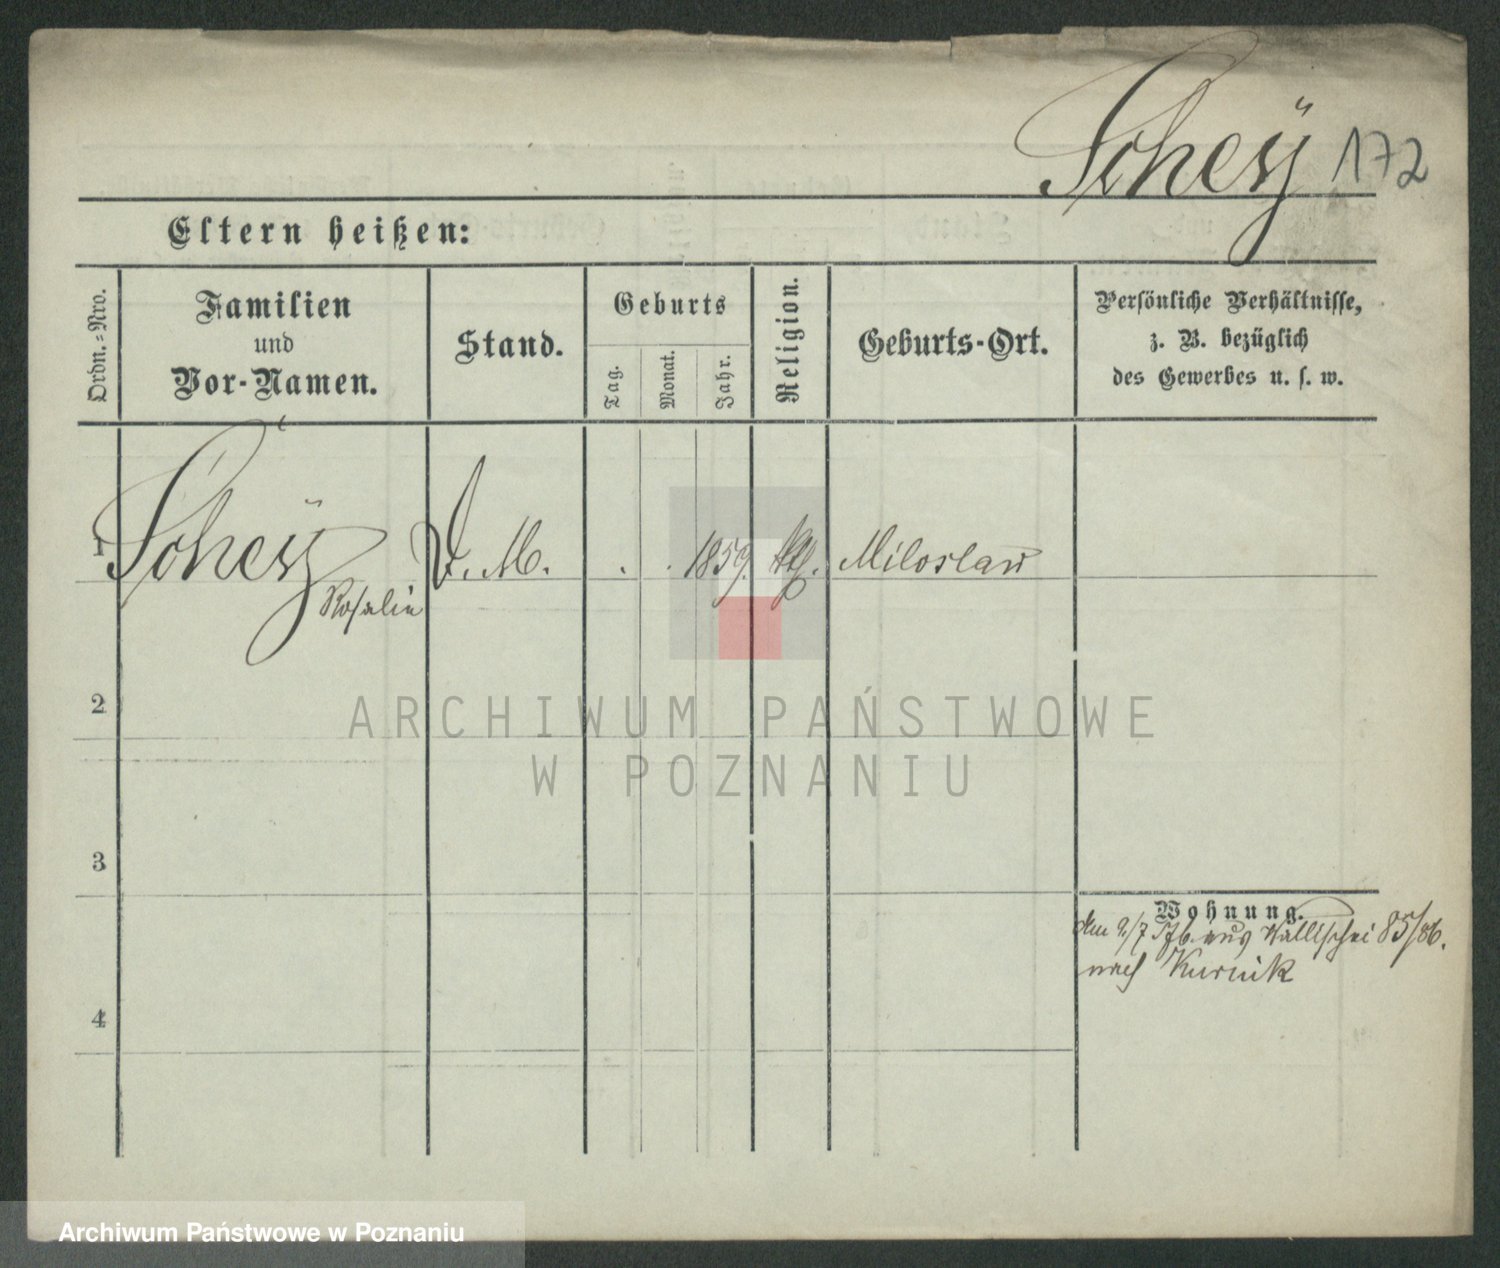 Scheÿ 172
Eltern heißen:
Ordn.=Nro.
Familien
und
Vor-Namen.
Stand.
Geburts
Tag.
Monat.
Jahr.
Religion.
Geburts-Ort.
Persönliche Verhältnisse,
z. B. bezüglich
des Gewerbes u. s. w.
1 Scheÿ D. M. . . 1859. Miloslaw
Rosalie
2
ARCHIWUM PAŃSTWOWE
W POZNANIU
3
Wohnung.
9/7 aus Wallischei 85/86.
nach Kurnik
4
Archiwum Państwowe w Poznaniu